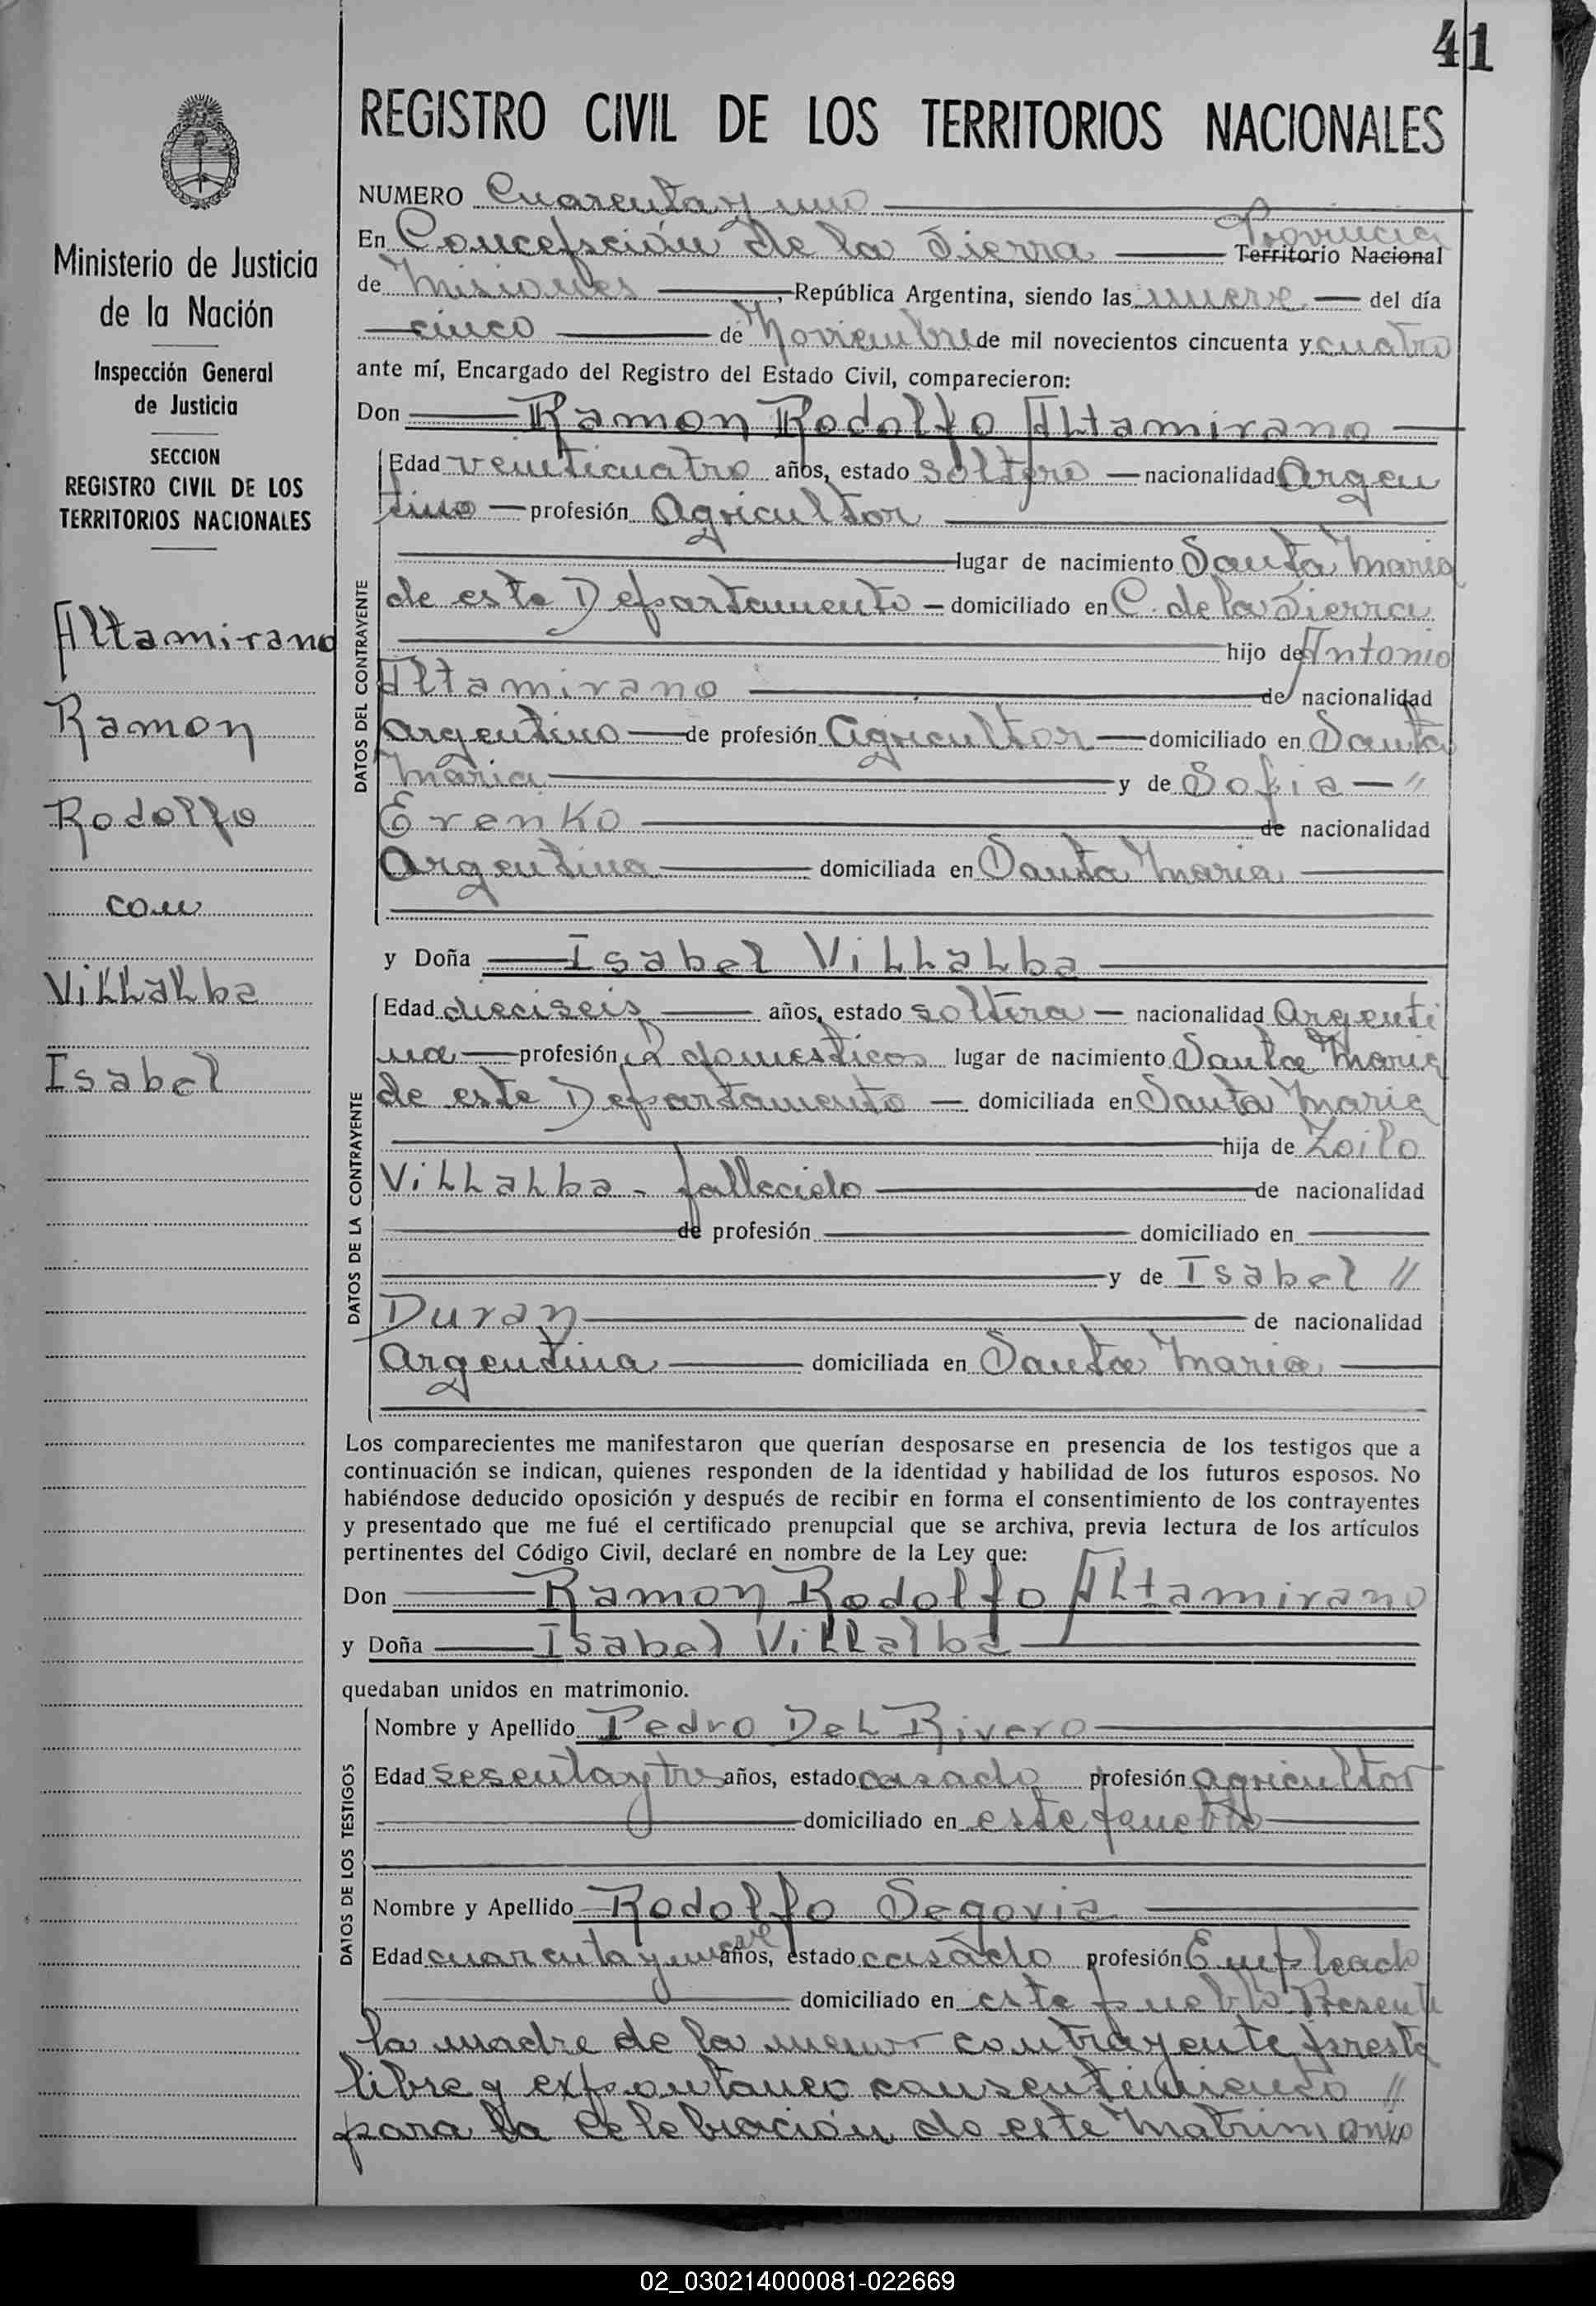 41
REGISTRO CIVIL DE LOS TERRITORIOS NACIONALES
Ministerio de Justicia
de la Nación
Inspección General
de Justicia
SECCION
REGISTRO CIVIL DE LOS
TERRITORIOS NACIONALES
Altamirano
Ramon
Rodolfo
con
Villalba
Isabel
NUMERO Cuarenta y uno
Provincia
En Concepción de la Sierra Territorio Nacional
de Misiones, República Argentina, siendo las nueve del día
cinco de Noviembre de mil novecientos cincuenta y cuatro
ante mí, Encargado del Registro del Estado Civil, comparecieron:
Don Ramon Rodolfo Altamirano
DATOS DEL CONTRAYENTE
Edad veinticuatro años, estado soltero nacionalidad Argen
tino profesión Agricultor
lugar de nacimiento Santa Maria
de este Departamento domiciliado en C. de la Sierra
hijo de Antonio
Altamirano de nacionalidad
Argentino de profesión Agricultor domiciliado en Santa
Maria y de Sofia "
Erenko de nacionalidad
Argentina domiciliada en Santa Maria
y Doña Isabel Villalba
DATOS DE LA CONTRAYENTE
Edad dieciseis años, estado soltera nacionalidad Argenti
na profesión Q domesticos lugar de nacimiento Santa Maria
de este Departamento domiciliada en Santa Maria
hija de Zoilo
Villalba - fallecido de nacionalidad
de profesión domiciliado en
y de Isabel "
Duran de nacionalidad
Argentina domiciliada en Santa Maria
Los comparecientes me manifestaron que querían desposarse en presencia de los testigos que a
continuación se indican, quienes responden de la identidad y habilidad de los futuros esposos. No
habiéndose deducido oposición y después de recibir en forma el consentimiento de los contrayentes
y presentado que me fué el certificado prenupcial que se archiva, previa lectura de los artículos
pertinentes del Código Civil, declaré en nombre de la Ley que:
Don Ramon Rodolfo Altamirano
y Doña Isabel Villalba
quedaban unidos en matrimonio.
DATOS DE LOS TESTIGOS
Nombre y Apellido Pedro Del Rivero
Edad sesenta y tres años, estado casado profesión agricultor
domiciliado en este pueblo
Nombre y Apellido Rodolfo Segovia
Edad cuarenta y nueve años, estado casado profesión Empleado
domiciliado en este pueblo Presente
la madre de la menor contrayente presta
libre y expontaneo consentimiento "
para la celebración de este Matrimonio
02_030214000081-022669